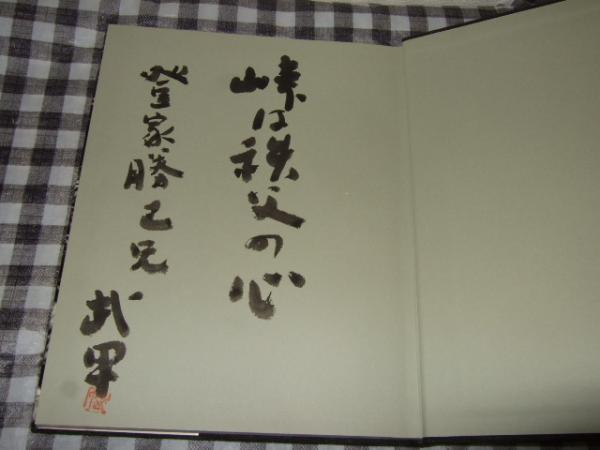 峠は秩父の心
登家勝己兄
武甲